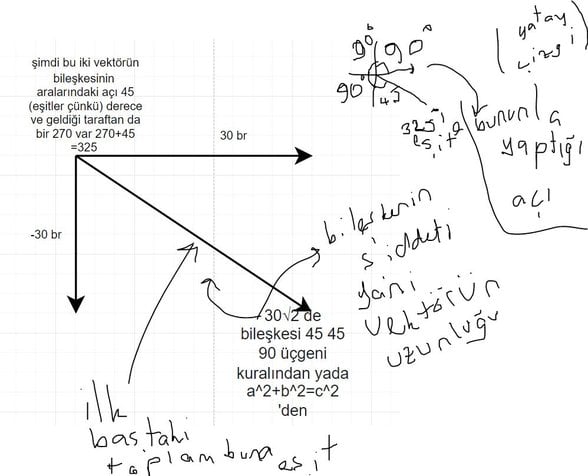 şimdi bu iki vektörün
bileşkesinin
aralarındaki açı 45
(eşitler çünkü) derece
ve geldiği taraftan da
bir 270 var 270+45
=325
30 br
-30 br
30√2 de
bileşkesi 45 45
90 üçgeni
kuralından yada
a^2+b^2=c^2
'den
90
90
90
45
325
eşit
(yatay
çizgi
bununla
yaptığı
açı
bileşkenin
şiddeti
yani
vektörün
uzunluğu
ilk
baştaki
toplam buna
eşit